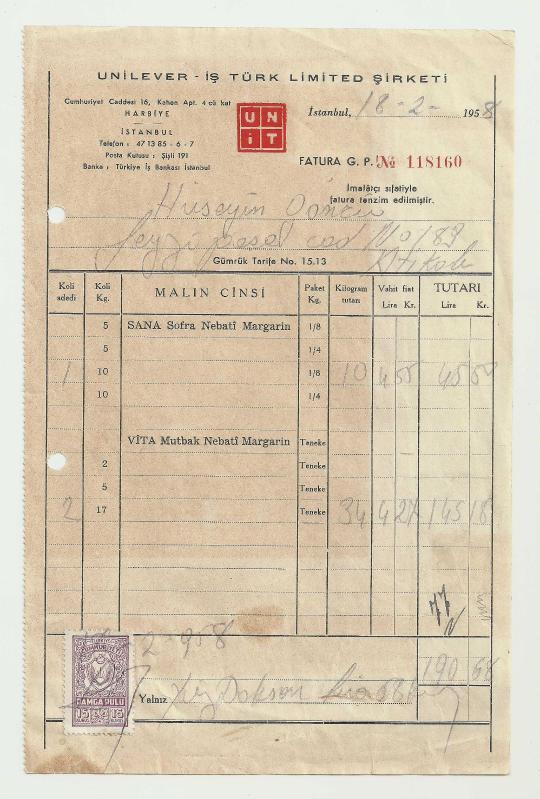 UNİLEVER - İŞ TÜRK LİMİTED ŞİRKETİ
Cumhuriyet Caddesi 16, Kahan Apt. 4 cü kat
HARBİYE
İSTANBUL
Telefon : 47 13 85 - 6 - 7
Posta Kutusu : Şişli 191
Banka : Türkiye İş Bankası İstanbul
UNİT
İstanbul, 18-2- 1958
FATURA G. P. No 118160
İmalâtçı sıfatiyle
fatura tanzim edilmiştir.
Hüseyin
cad No/89
Gümrük Tarife No. 15.13
Koli adedi Koli Kg. MALIN CİNSİ Paket Kg. Kilogram tutarı Vahit fiat Lira Kr. TUTARI Lira Kr.
5 SANA Sofra Nebatî Margarin 1/8
5 1/4
1 10 1/8 10 4 55 45 50
10 1/4
VİTA Mutbak Nebatî Margarin Teneke
2 Teneke
5 Teneke
2 17 Teneke 34 4 27 145 18
77
18-2-958
190 68
TÜRKİYE CUMHURİYETİ
Yalnız Yüz Doksan lira 68
DAMGA PULU
15 15